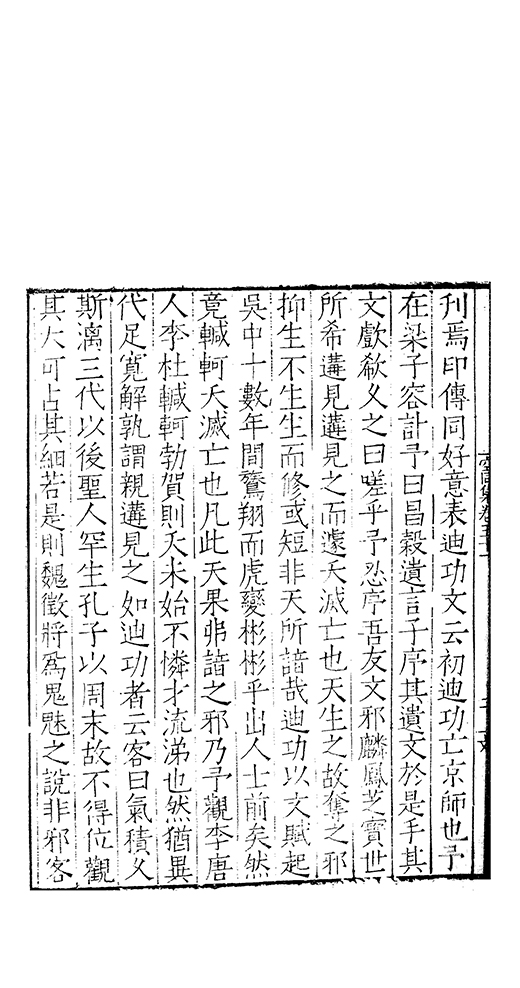 刋焉印傳同好意表迪功文云初迪功亡京師也予
在梁子容訃予曰昌榖遺言子序其遺文於是手其
文歔欷乆之曰嗟乎予忍序吾友文邪麟鳳芝寳世
所希遘見遘見之而遽夭滅亡也天生之故奪之邪
抑生不生生而修或短非天所諳哉迪功以文賦起
吳中十數年間鶱翔而虎變彬彬乎出人士前矣然
竟轗軻夭滅亡也凡此天果弗諳之邪乃予觀李唐
人李杜轗軻勃賀則夭未始不憐才流涕也然猶異
代足寬解孰謂親遘見之如迪功者云客曰氣積乆
斯漓三代以後聖人罕生孔子以周末故不得位觀
其大可占其細若是則魏徵將爲鬼魅之說非邪客